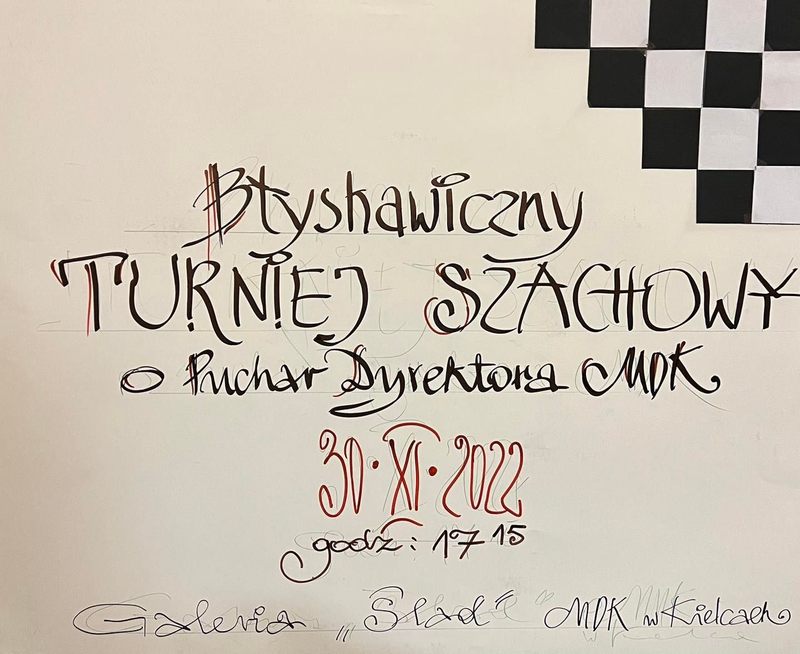 Błyskawiczny
TURNIEJ SZACHOWY
o Puchar Dyrektora MDK
30·XI·2022
godz: 17 15
Galeria „Ślad" MDK w Kielcach